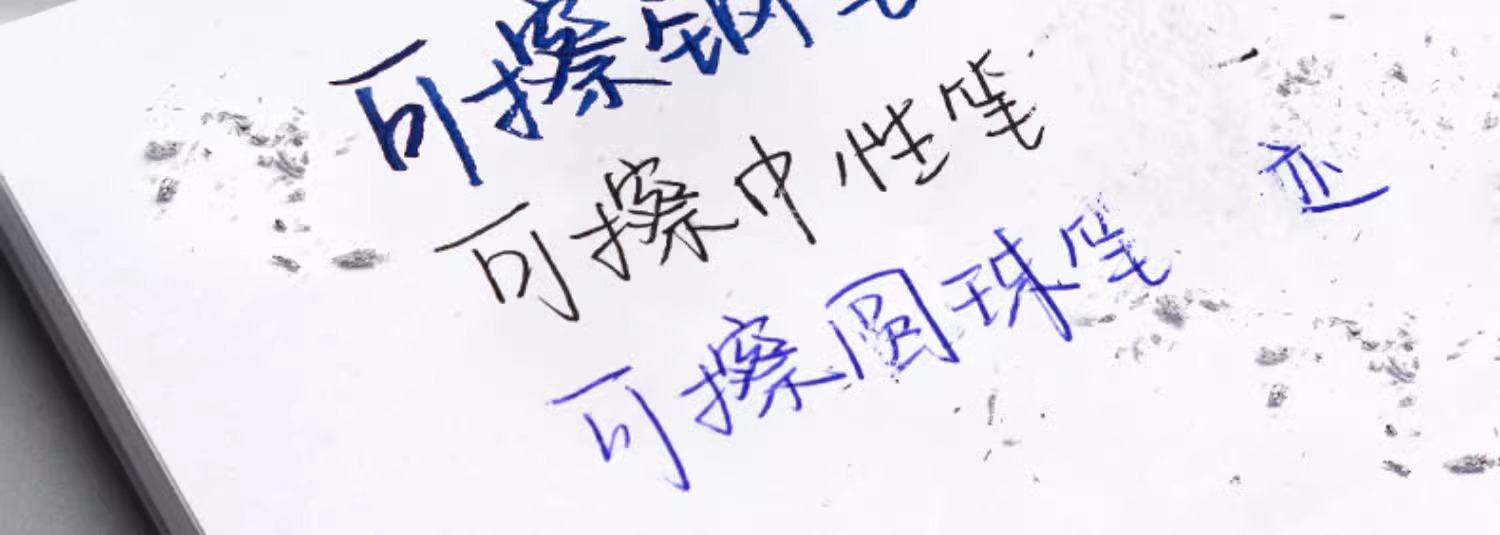 可擦钢笔
可擦中性笔
可擦圆珠笔迹